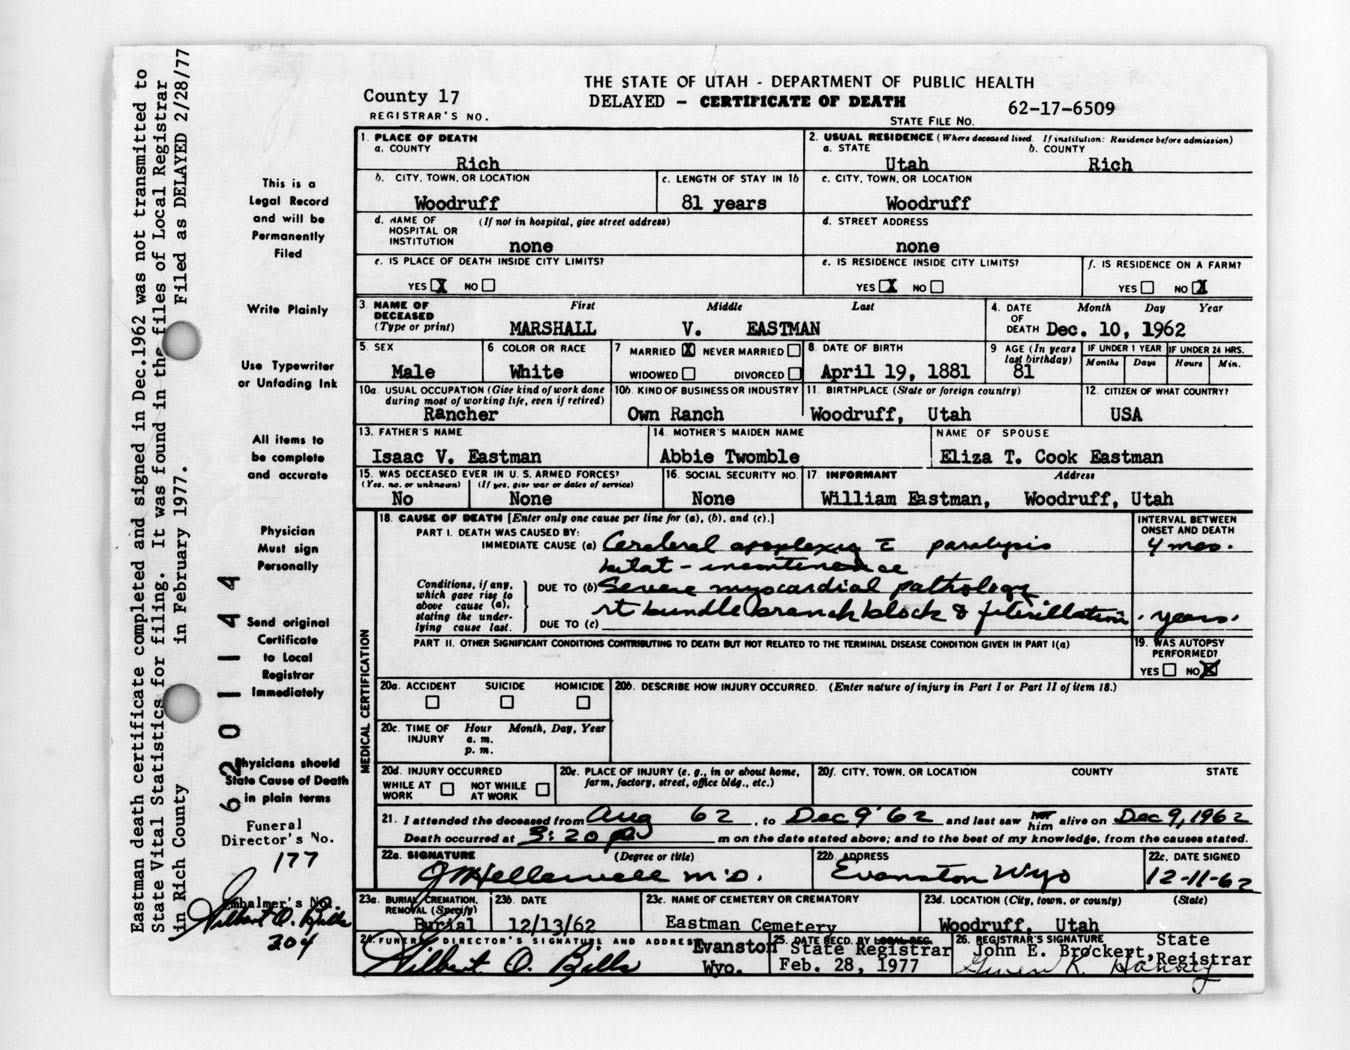 THE STATE OF UTAH - DEPARTMENT OF PUBLIC HEALTH
County 17
DELAYED - CERTIFICATE OF DEATH
62-17-6509
REGISTRAR'S NO.
STATE FILE NO.
Eastman death certificate completed and signed in Dec.1962 was not transmitted to
State Vital Statistics for filing. It was found in the files of Local Registrar
in Rich County in February 1977. Filed as DELAYED 2/28/77
620 1144
This is a
Legal Record
and will be
Permanently
Filed
Write Plainly
Use Typewriter
or Unfading Ink
All items to
be complete
and accurate
Physician
Must sign
Personally
Send original
Certificate
to Local
Registrar
Immediately
Physicians should
State Cause of Death
in plain terms
Funeral
Director's No.
177
Embalmer's No.
Wilbert O. Bills
204
1. PLACE OF DEATH
a. COUNTY
Rich
2. USUAL RESIDENCE (Where deceased lived. If institution: Residence before admission)
a. STATE b. COUNTY
Utah Rich
b. CITY, TOWN, OR LOCATION
Woodruff
c. LENGTH OF STAY IN 1b
81 years
c. CITY, TOWN, OR LOCATION
Woodruff
d. NAME OF (If not in hospital, give street address)
HOSPITAL OR
INSTITUTION none
d. STREET ADDRESS
none
e. IS PLACE OF DEATH INSIDE CITY LIMITS?
YES X NO
e. IS RESIDENCE INSIDE CITY LIMITS?
YES X NO
f. IS RESIDENCE ON A FARM?
YES NO X
3 NAME OF First Middle Last
DECEASED
(Type or print) MARSHALL V. EASTMAN
4. DATE Month Day Year
OF
DEATH Dec. 10, 1962
5. SEX
Male
6 COLOR OR RACE
White
7 MARRIED X NEVER MARRIED
WIDOWED DIVORCED
8 DATE OF BIRTH
April 19, 1881
9 AGE (In years
last birthday)
81
IF UNDER 1 YEAR IF UNDER 24 HRS.
Months Days Hours Min.
10a. USUAL OCCUPATION (Give kind of work done
during most of working life, even if retired)
Rancher
10b. KIND OF BUSINESS OR INDUSTRY
Own Ranch
11. BIRTHPLACE (State or foreign country)
Woodruff, Utah
12 CITIZEN OF WHAT COUNTRY?
USA
13. FATHER'S NAME
Isaac V. Eastman
14 MOTHER'S MAIDEN NAME
Abbie Twomble
NAME OF SPOUSE
Eliza T. Cook Eastman
15. WAS DECEASED EVER IN U. S. ARMED FORCES?
(Yes, no, or unknown) (If yes, give war or dates of service)
No None
16. SOCIAL SECURITY NO.
None
17 INFORMANT Address
William Eastman, Woodruff, Utah
MEDICAL CERTIFICATION
18. CAUSE OF DEATH [Enter only one cause per line for (a), (b), and (c).]
INTERVAL BETWEEN
ONSET AND DEATH
PART I. DEATH WAS CAUSED BY:
IMMEDIATE CAUSE (a) Cerebral apoplexy c paralysis 4 mos.
bilat - incontinence
Conditions, if any,
which gave rise to
above cause (a),
stating the under-
lying cause last.
DUE TO (b) Severe myocardial pathology
rt bundle branch block & fibrillation. years.
DUE TO (c)
PART II. OTHER SIGNIFICANT CONDITIONS CONTRIBUTING TO DEATH BUT NOT RELATED TO THE TERMINAL DISEASE CONDITION GIVEN IN PART I(a)
19. WAS AUTOPSY
PERFORMED?
YES NO X
20a. ACCIDENT SUICIDE HOMICIDE
20b. DESCRIBE HOW INJURY OCCURRED. (Enter nature of injury in Part I or Part II of item 18.)
20c. TIME OF Hour Month, Day, Year
INJURY a. m.
p. m.
20d. INJURY OCCURRED
WHILE AT NOT WHILE
WORK AT WORK
20e. PLACE OF INJURY (e. g., in or about home,
farm, factory, street, office bldg., etc.)
20f. CITY, TOWN, OR LOCATION COUNTY STATE
21. I attended the deceased from Aug 62, to Dec 9 '62 and last saw her him alive on Dec 9, 1962
Death occurred at 3:20 p m on the date stated above; and to the best of my knowledge, from the causes stated.
22a. SIGNATURE (Degree or title)
J M Hellewell M.D.
22b. ADDRESS
Evanston Wyo
22c. DATE SIGNED
12-11-62
23a. BURIAL, CREMATION,
REMOVAL (Specify)
Burial
23b. DATE
12/13/62
23c. NAME OF CEMETERY OR CREMATORY
Eastman Cemetery
23d. LOCATION (City, town, or county) (State)
Woodruff, Utah
24. FUNERAL DIRECTOR'S SIGNATURE AND ADDRESS
Wilbert O. Bills Evanston
Wyo.
25. DATE RECD. BY LOCAL REG.
State Registrar
Feb. 28, 1977
26. REGISTRAR'S SIGNATURE State
John E. Brockert, Registrar